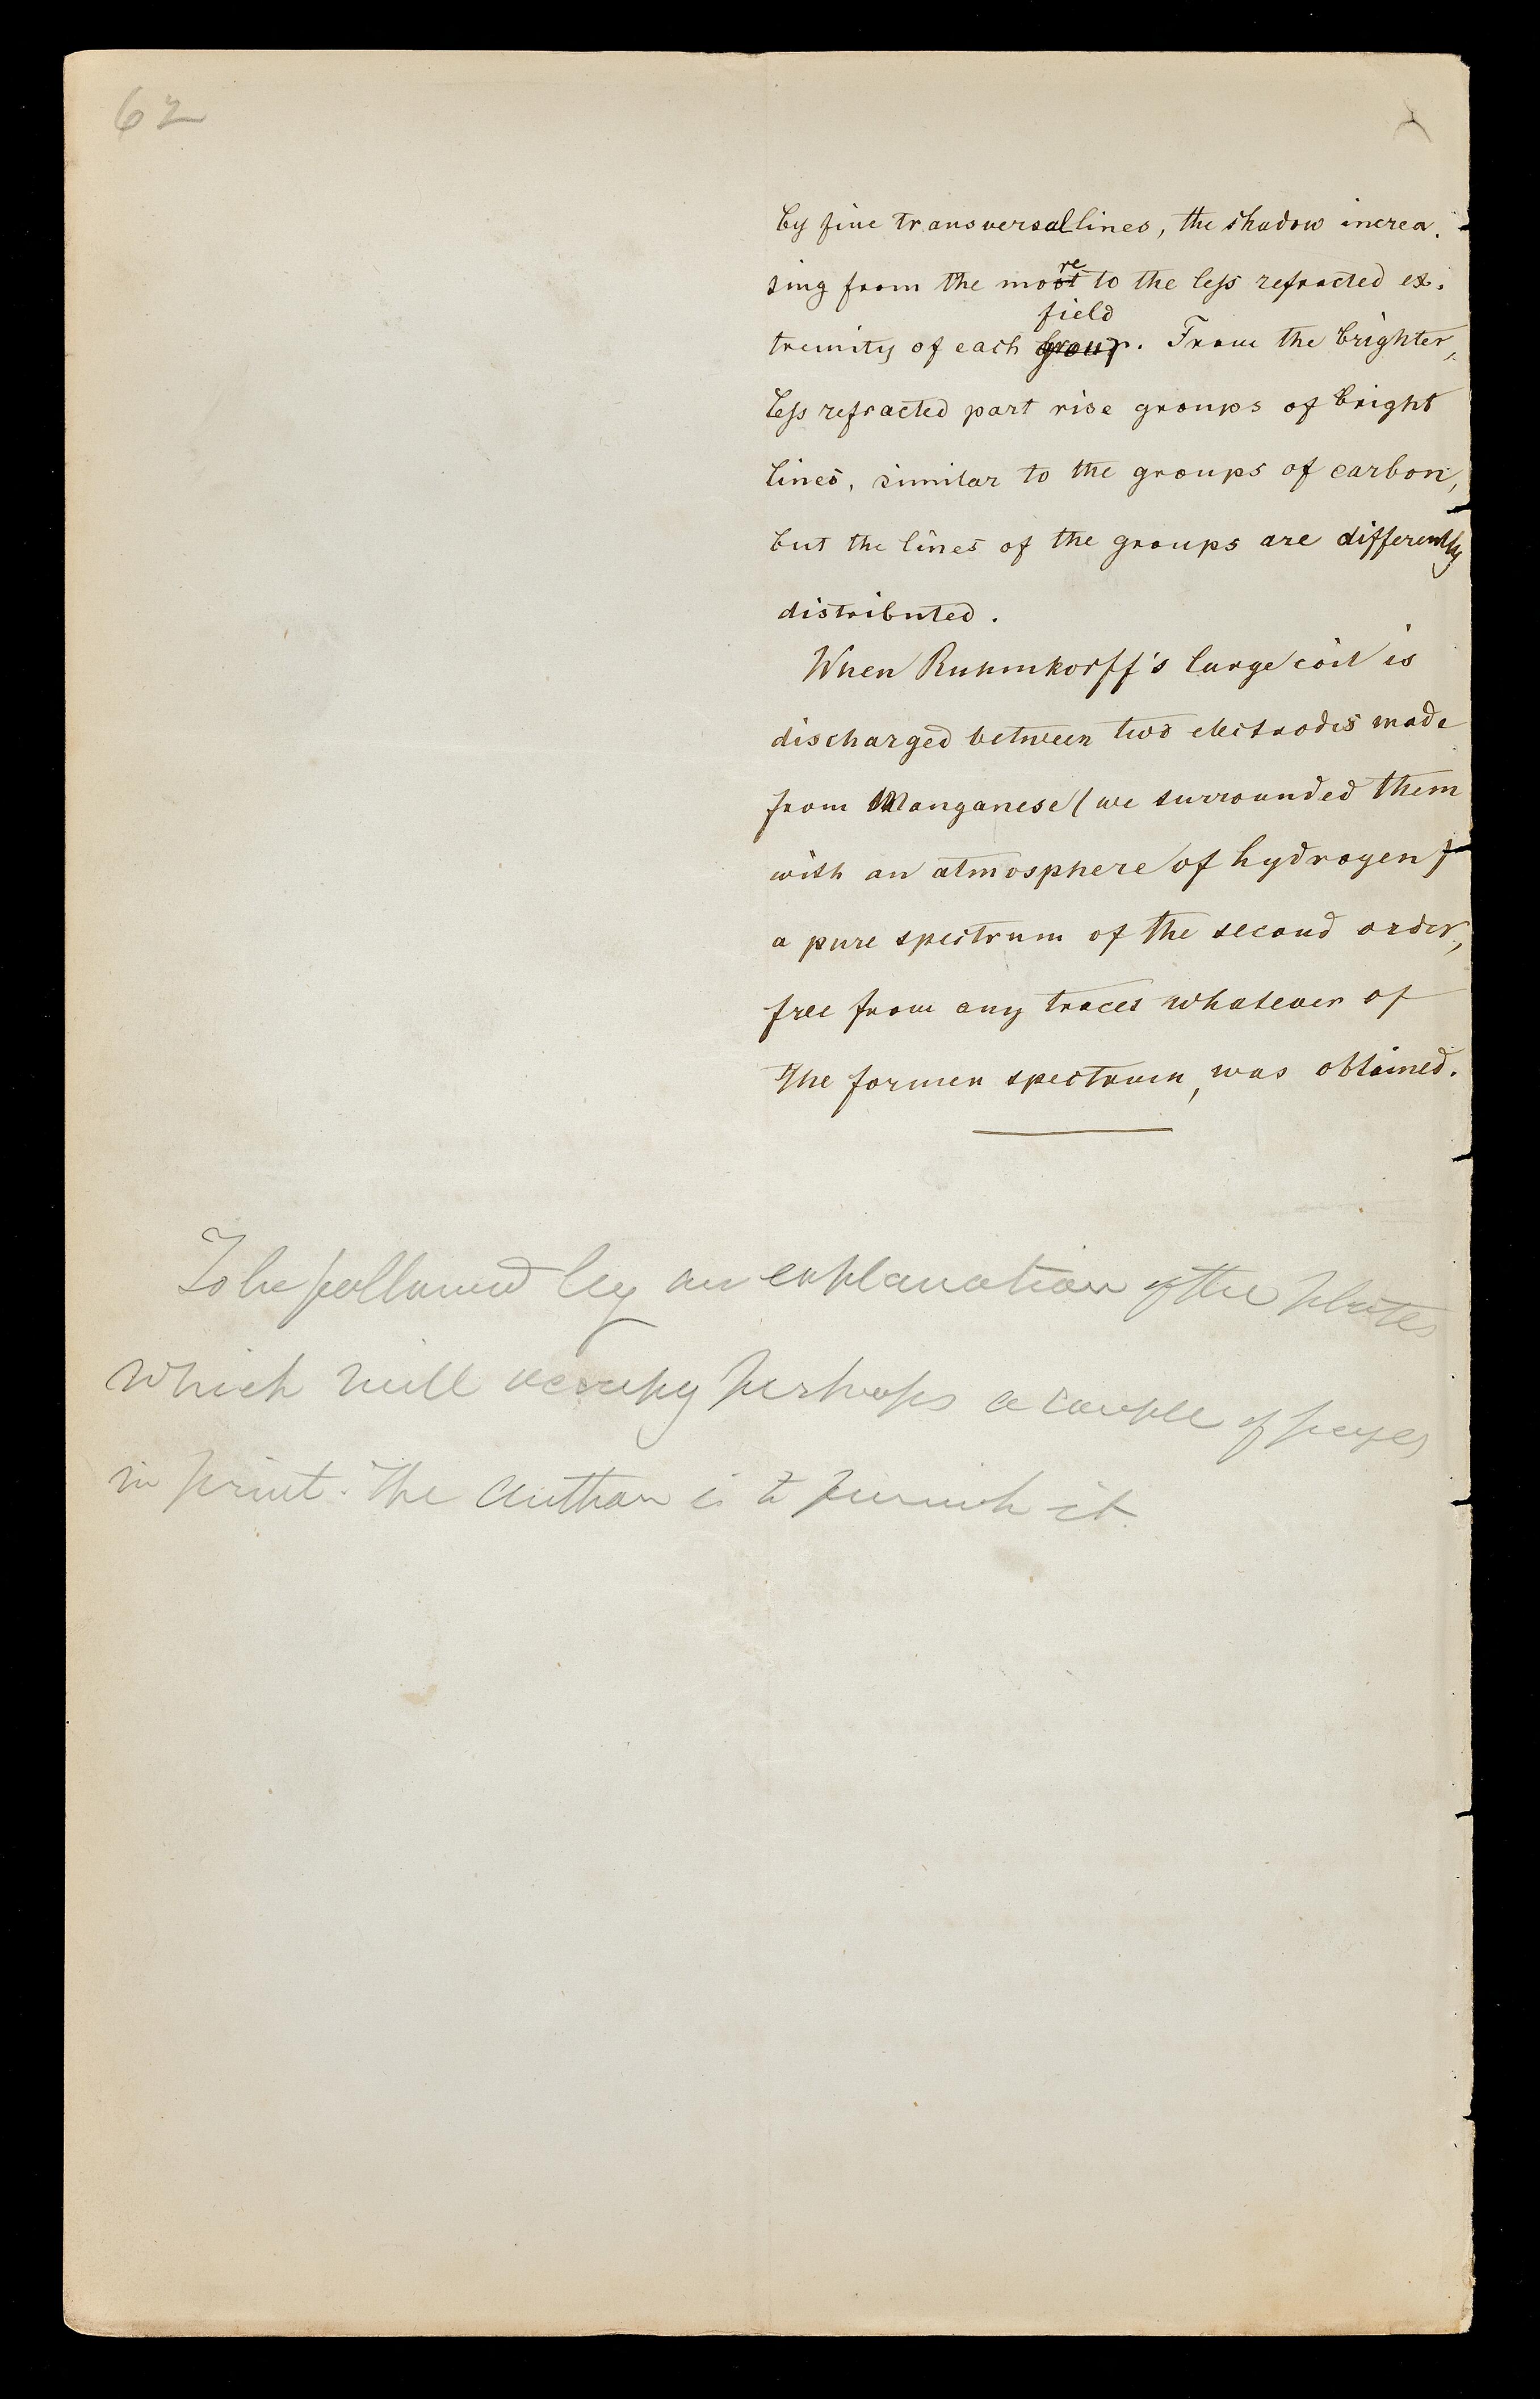 62
by fine transversal lines, the shadow increa-
sing from the more to the less refracted ex-
field
tremity of each group. From the brighter,
less refracted part rise groups of bright
lines, similar to the groups of carbon,
but the lines of the groups are differently
distributed.
When Ruhmkorff's large coil is
discharged between two electrodes made
from Manganese (we surrounded them
with an atmosphere of hydrogen)
a pure spectrum of the second order,
free from any traces whatever of
the former spectrum, was obtained.
To be followed by an explanation of the plates
which will occupy perhaps a couple of pages
in print. The author is to furnish it.